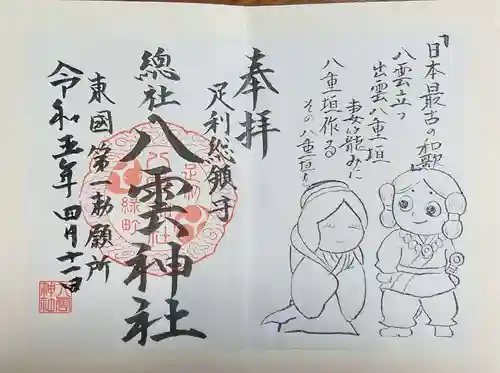 「日本最古の和歌」
八雲立つ
出雲八重垣
妻籠みに
八重垣作る
その八重垣を
奉拝
足利総領守
總社
八雲神社
東國第一勅願所
令和五年四月十一日
足利
緑町
八雲
神社